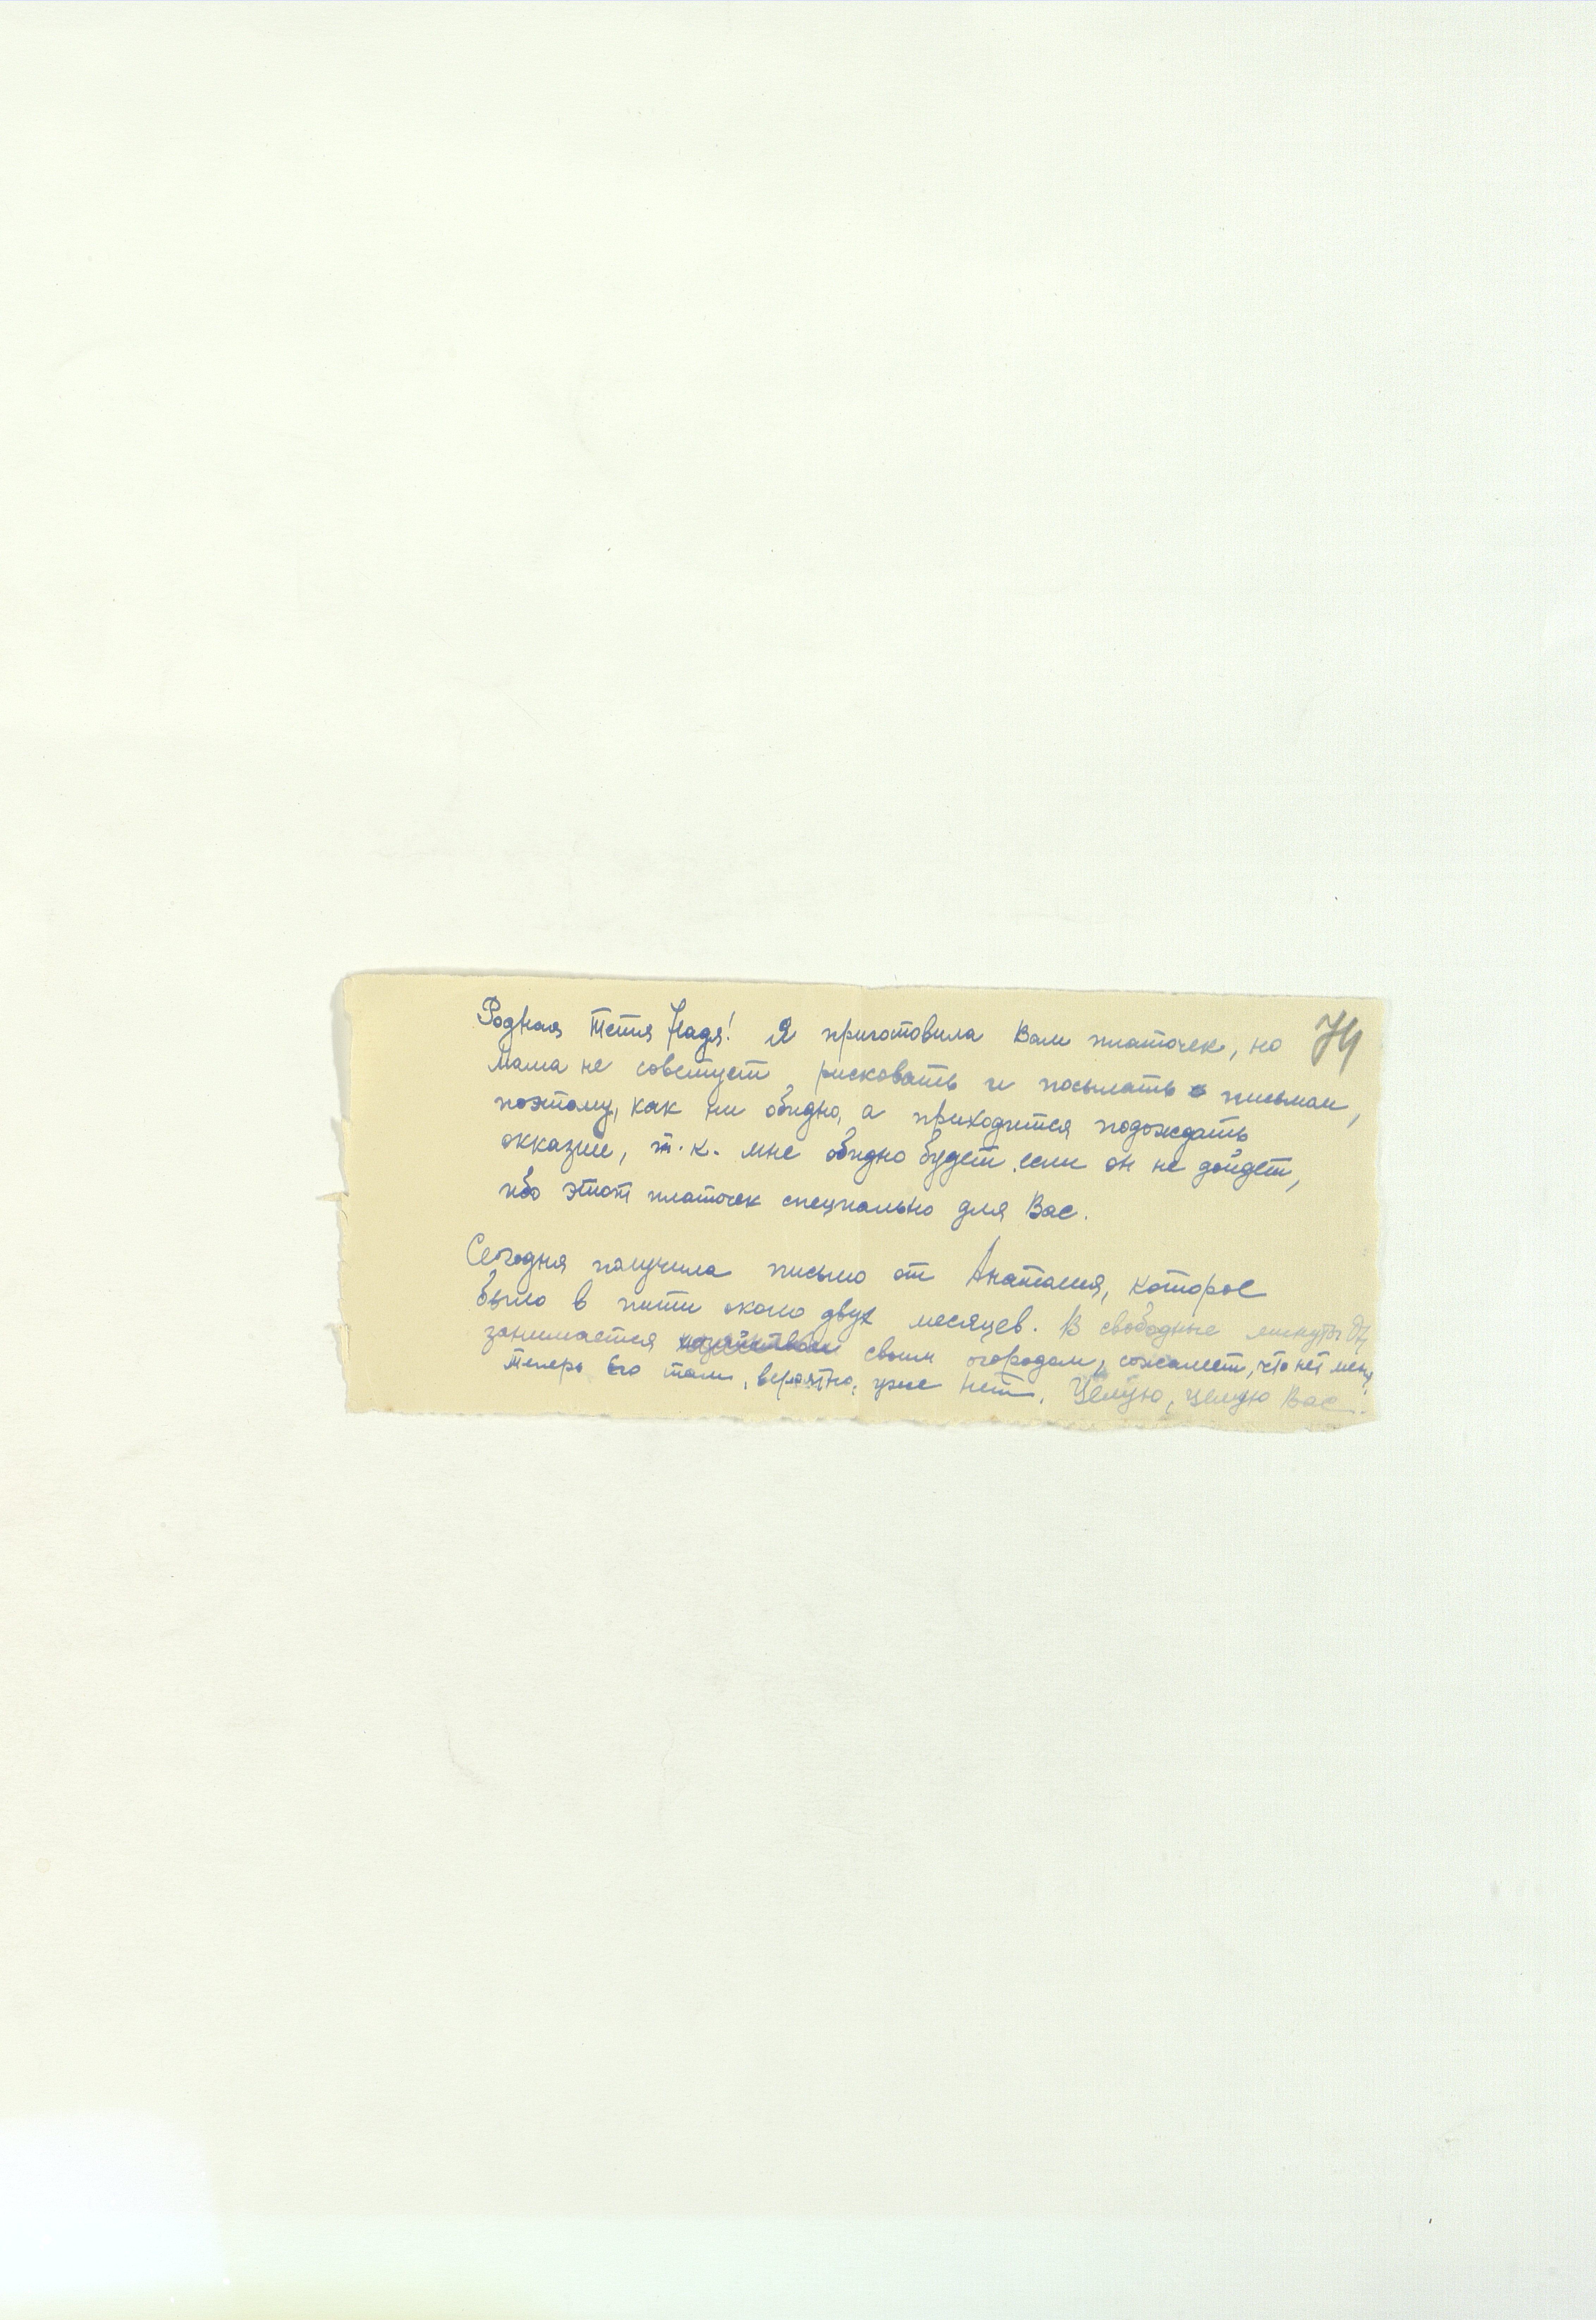 Родная тетя Надя! Я приготовила Вам платочек, но 74
мама не советует рисковать и посылать письмом,
поэтому, как ни обидно, а приходится подождать
оказии, т.к. мне обидно будет если он не дойдет,
ибо этот платочек специально для Вас.
Сегодня получила письмо от Анатолия, которое
было в пути около двух месяцев. В свободные минуты
занимается своим огородом, сожалеет, что нет меня.
Теперь его там, вероятно, уже нет. Целую, целую Вас.